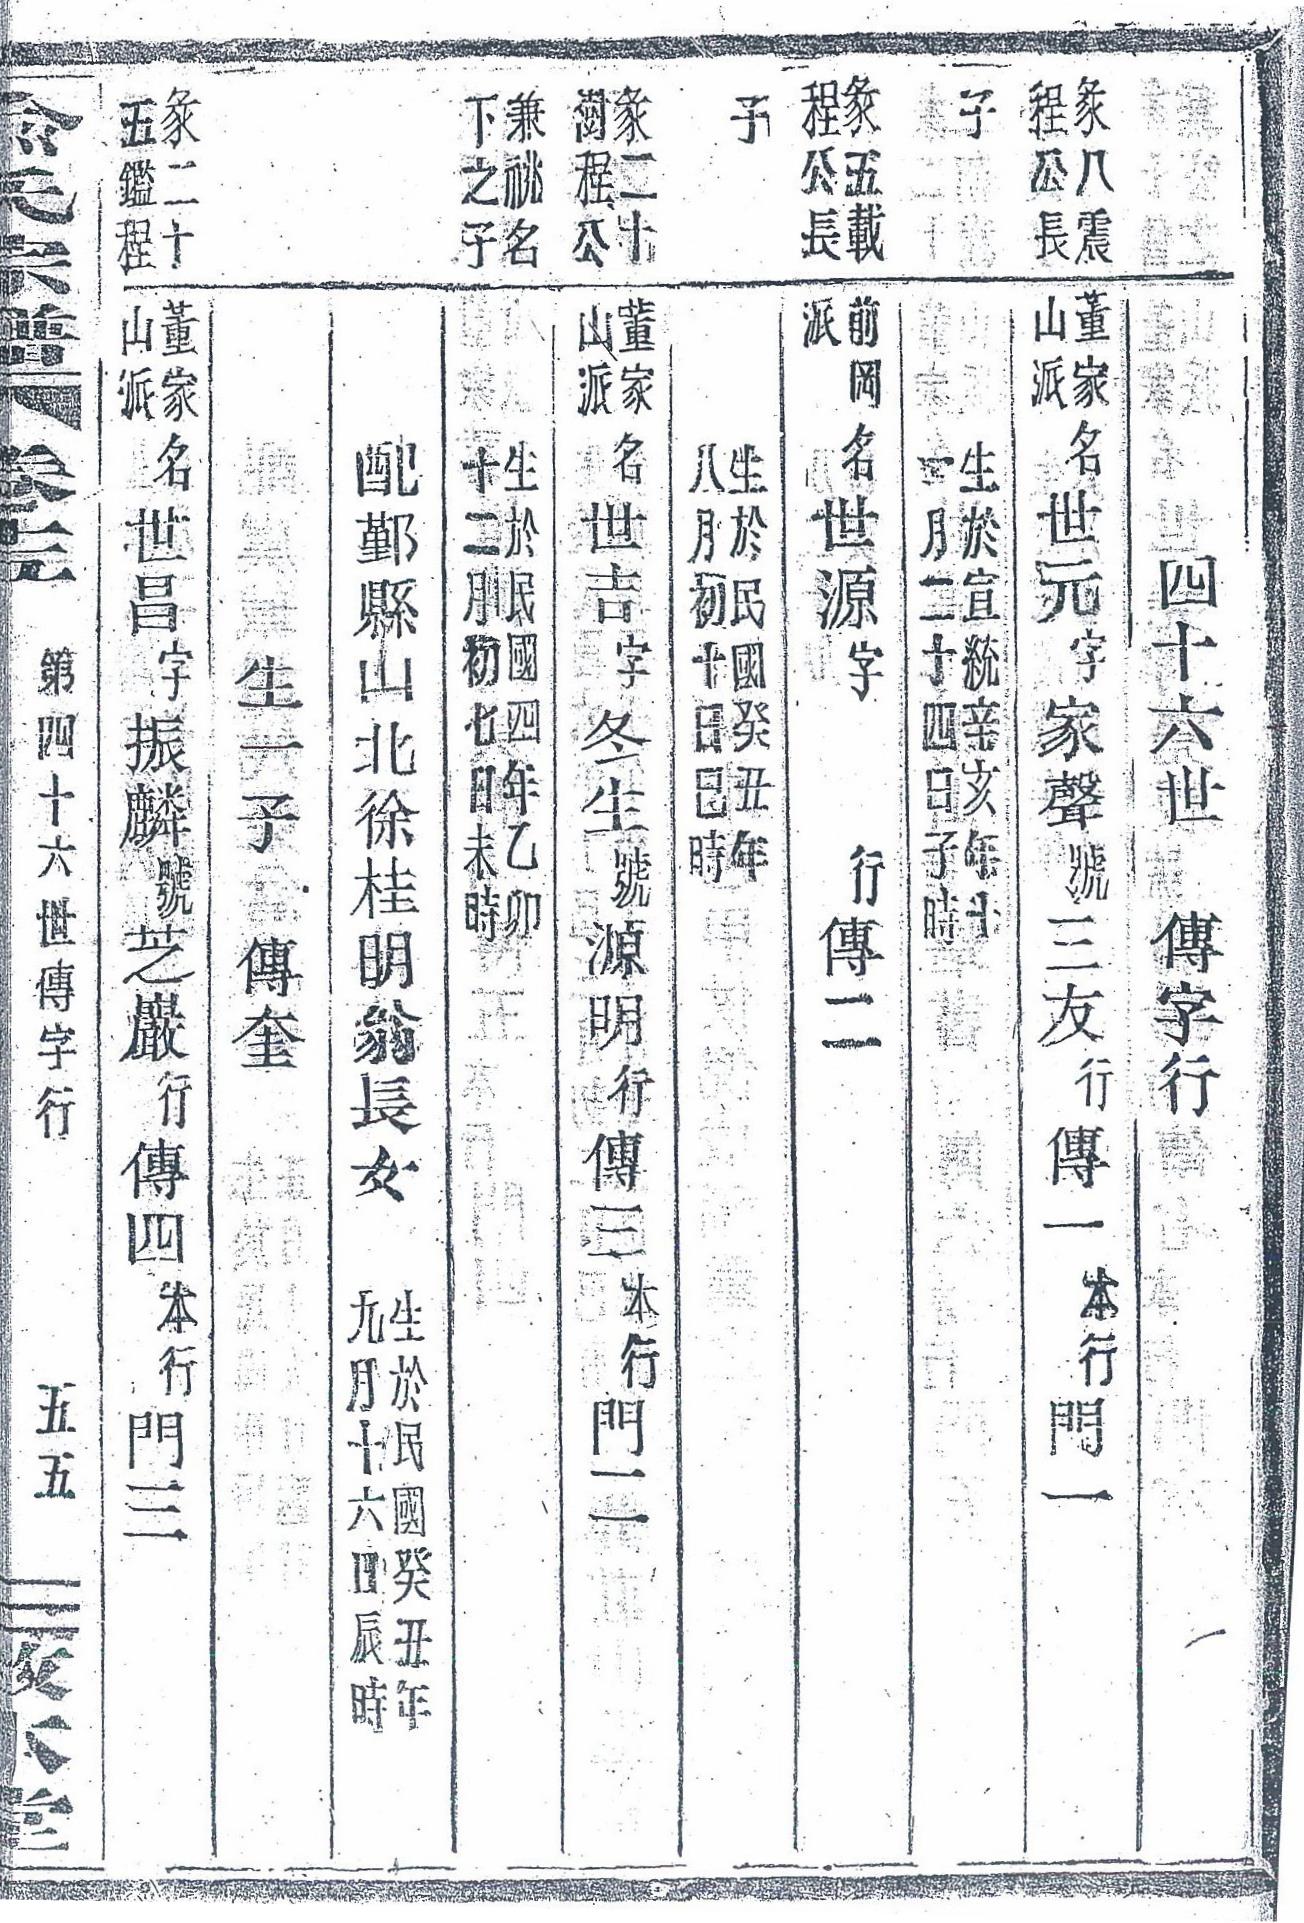 四十六世　傳字行
彖八震
程公長
董家
山派
名世元字家聲號三友行傳一本行門一
子
生於宣統辛亥年十
一月二十四日子時
彖五載
程公長
前岡
派
名世源字　行傳二
子
生於民國癸丑年
八月初十日巳時
彖二十
澍程公
董家
山派
名世吉字冬生號源明行傳三本行門二
兼祧名
下之子
生於民國四年乙卯
十二月初七日未時
配鄞縣山北徐桂明翁長女
生於民國癸丑年
九月十六日辰時
生一子　傳奎
彖二十
五鑑程
董家
山派
名世昌字振麟號芝巖行傳四本行門三
氏宗譜
卷元
第四十六世傳字行
五五
本堂